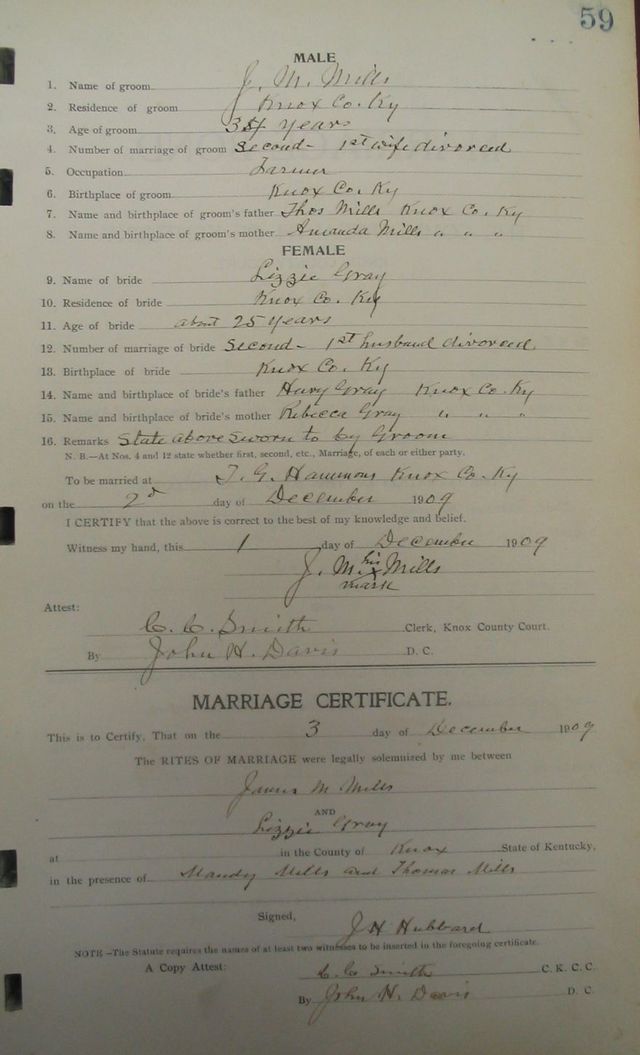 59
MALE
1. Name of groom J. M. Mills
2. Residence of groom Knox Co. Ky
3. Age of groom 34 years
4. Number of marriage of groom Second - 1st wife divorced
5. Occupation Farmer
6. Birthplace of groom Knox Co. Ky
7. Name and birthplace of groom's father Thos Mills Knox Co. Ky
8. Name and birthplace of groom's mother Amanda Mills " " "
FEMALE
9. Name of bride Lizzie Gray
10. Residence of bride Knox Co. Ky
11. Age of bride about 25 years
12. Number of marriage of bride Second - 1st husband divorced
13. Birthplace of bride Knox Co. Ky
14. Name and birthplace of bride's father Gray Knox Co. Ky
15. Name and birthplace of bride's mother Rebecca Gray " " "
16. Remarks State above sworn to by Groom
N. B.—At Nos. 4 and 12 state whether first, second, etc., Marriage, of each or either party.
To be married at T. G. Hammons Knox Co. Ky
on the 2d day of December 1909
I CERTIFY that the above is correct to the best of my knowledge and belief.
Witness my hand, this 1 day of December 1909
J. M. his x mark Mills
Attest:
C. C. Smith Clerk, Knox County Court.
By John H. Davis D. C.
MARRIAGE CERTIFICATE.
This is to Certify, That on the 3 day of December 1909
The RITES OF MARRIAGE were legally solemnized by me between
James M Mills
AND
Lizzie Gray
at in the County of Knox State of Kentucky,
in the presence of Mandy Mills and Thomas Mills
Signed, J H Hubbard
NOTE—The Statute requires the names of at least two witnesses to be inserted in the foregoing certificate.
A Copy Attest: C. C. Smith C. K. C. C.
By John H. Davis D. C.